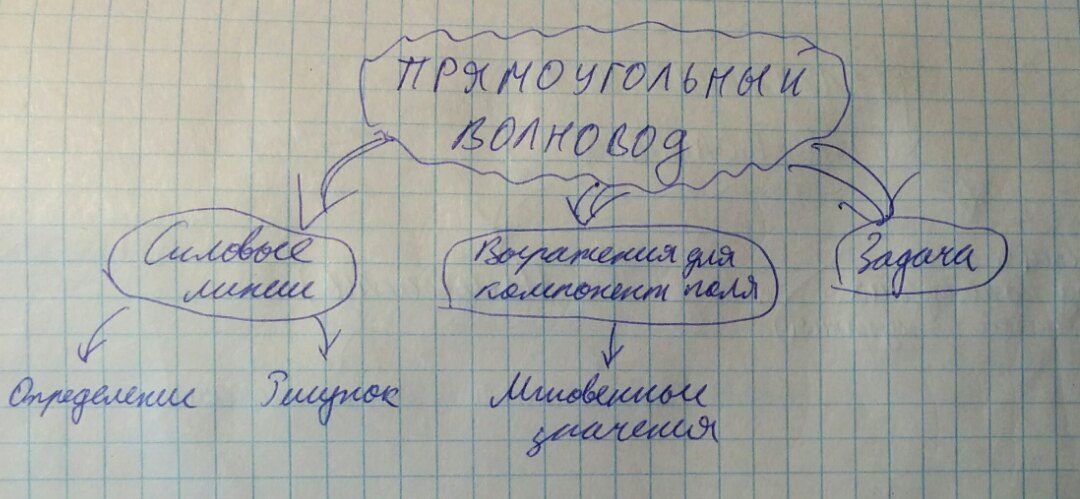 ПРЯМОУГОЛЬНЫЙ
ВОЛНОВОД
Силовые
линии
Выражения для
компонент поля
Задача
Определение
Рисунок
Мгновенные
значения